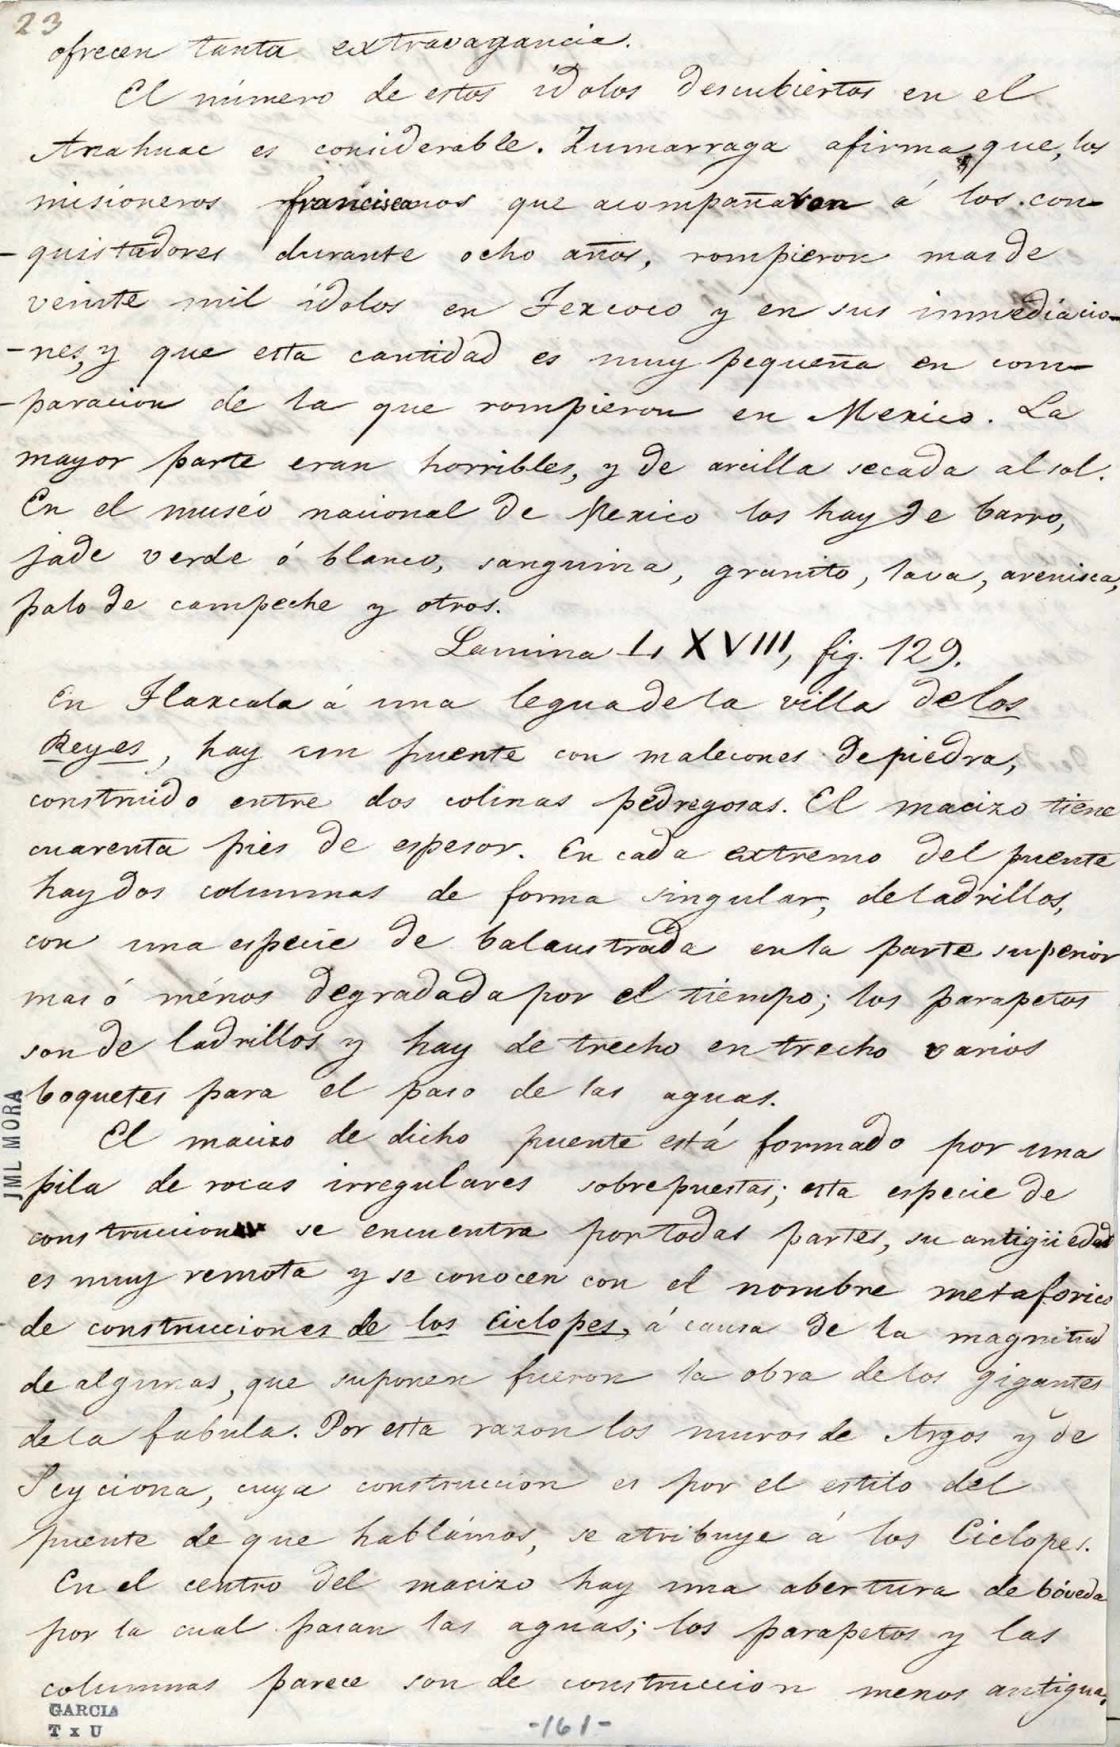 23
ofrecen tanta extravagancia.
El número de estos ídolos descubiertos en el
Anahuac es considerable. Zumarraga afirma que, los
misioneros franciscanos que acompañaron á los con-
-quistadores durante ocho años, rompieron mas de
veinte mil ídolos en Texcoco y en sus inmediacio-
-nes, y que esta cantidad es muy pequeña en com-
-paracion de la que rompieron en Mexico. La
mayor parte eran horribles, y de arcilla secada al sol.
En el muséo nacional de Mexico los hay de barro,
jade verde ó blanco, sanguina, granito, lava, arenisca,
palo de campeche y otros.
Lamina LXVIII, fig. 129.
En Tlaxcala á una legua de la villa de los
Reyes, hay un puente con malecones de piedra,
construido entre dos colinas pedregosas. El macizo tiene
cuarenta piés de espesor. En cada extremo del puente
hay dos columnas de forma singular, de ladrillos,
con una especie de balaustrada en la parte superior
mas ó ménos degradada por el tiempo; los parapetos
son de ladrillos y hay de trecho en trecho varios
boquetes para el paso de las aguas.
El macizo de dicho puente está formado por una
pila de rocas irregulares sobrepuestas; esta especie de
construccion se encuentra por todas partes, su antigüedad
es muy remota y se conocen con el nombre metaforico
de construcciones de los Ciclopes, á causa de la magnitud
de algunas, que suponen fueron la obra de los gigantes
de la fabula. Por esta razon los muros de Argos y de
Scyciona, cuya construccion es por el estilo del
puente de que hablámos, se atribuye á los Ciclopes.
En el centro del macizo hay una abertura de bóveda
por la cual pasan las aguas; los parapetos y las
columnas parece son de construccion menos antigua,
JML MORA
GARCIA
T x U
-161-